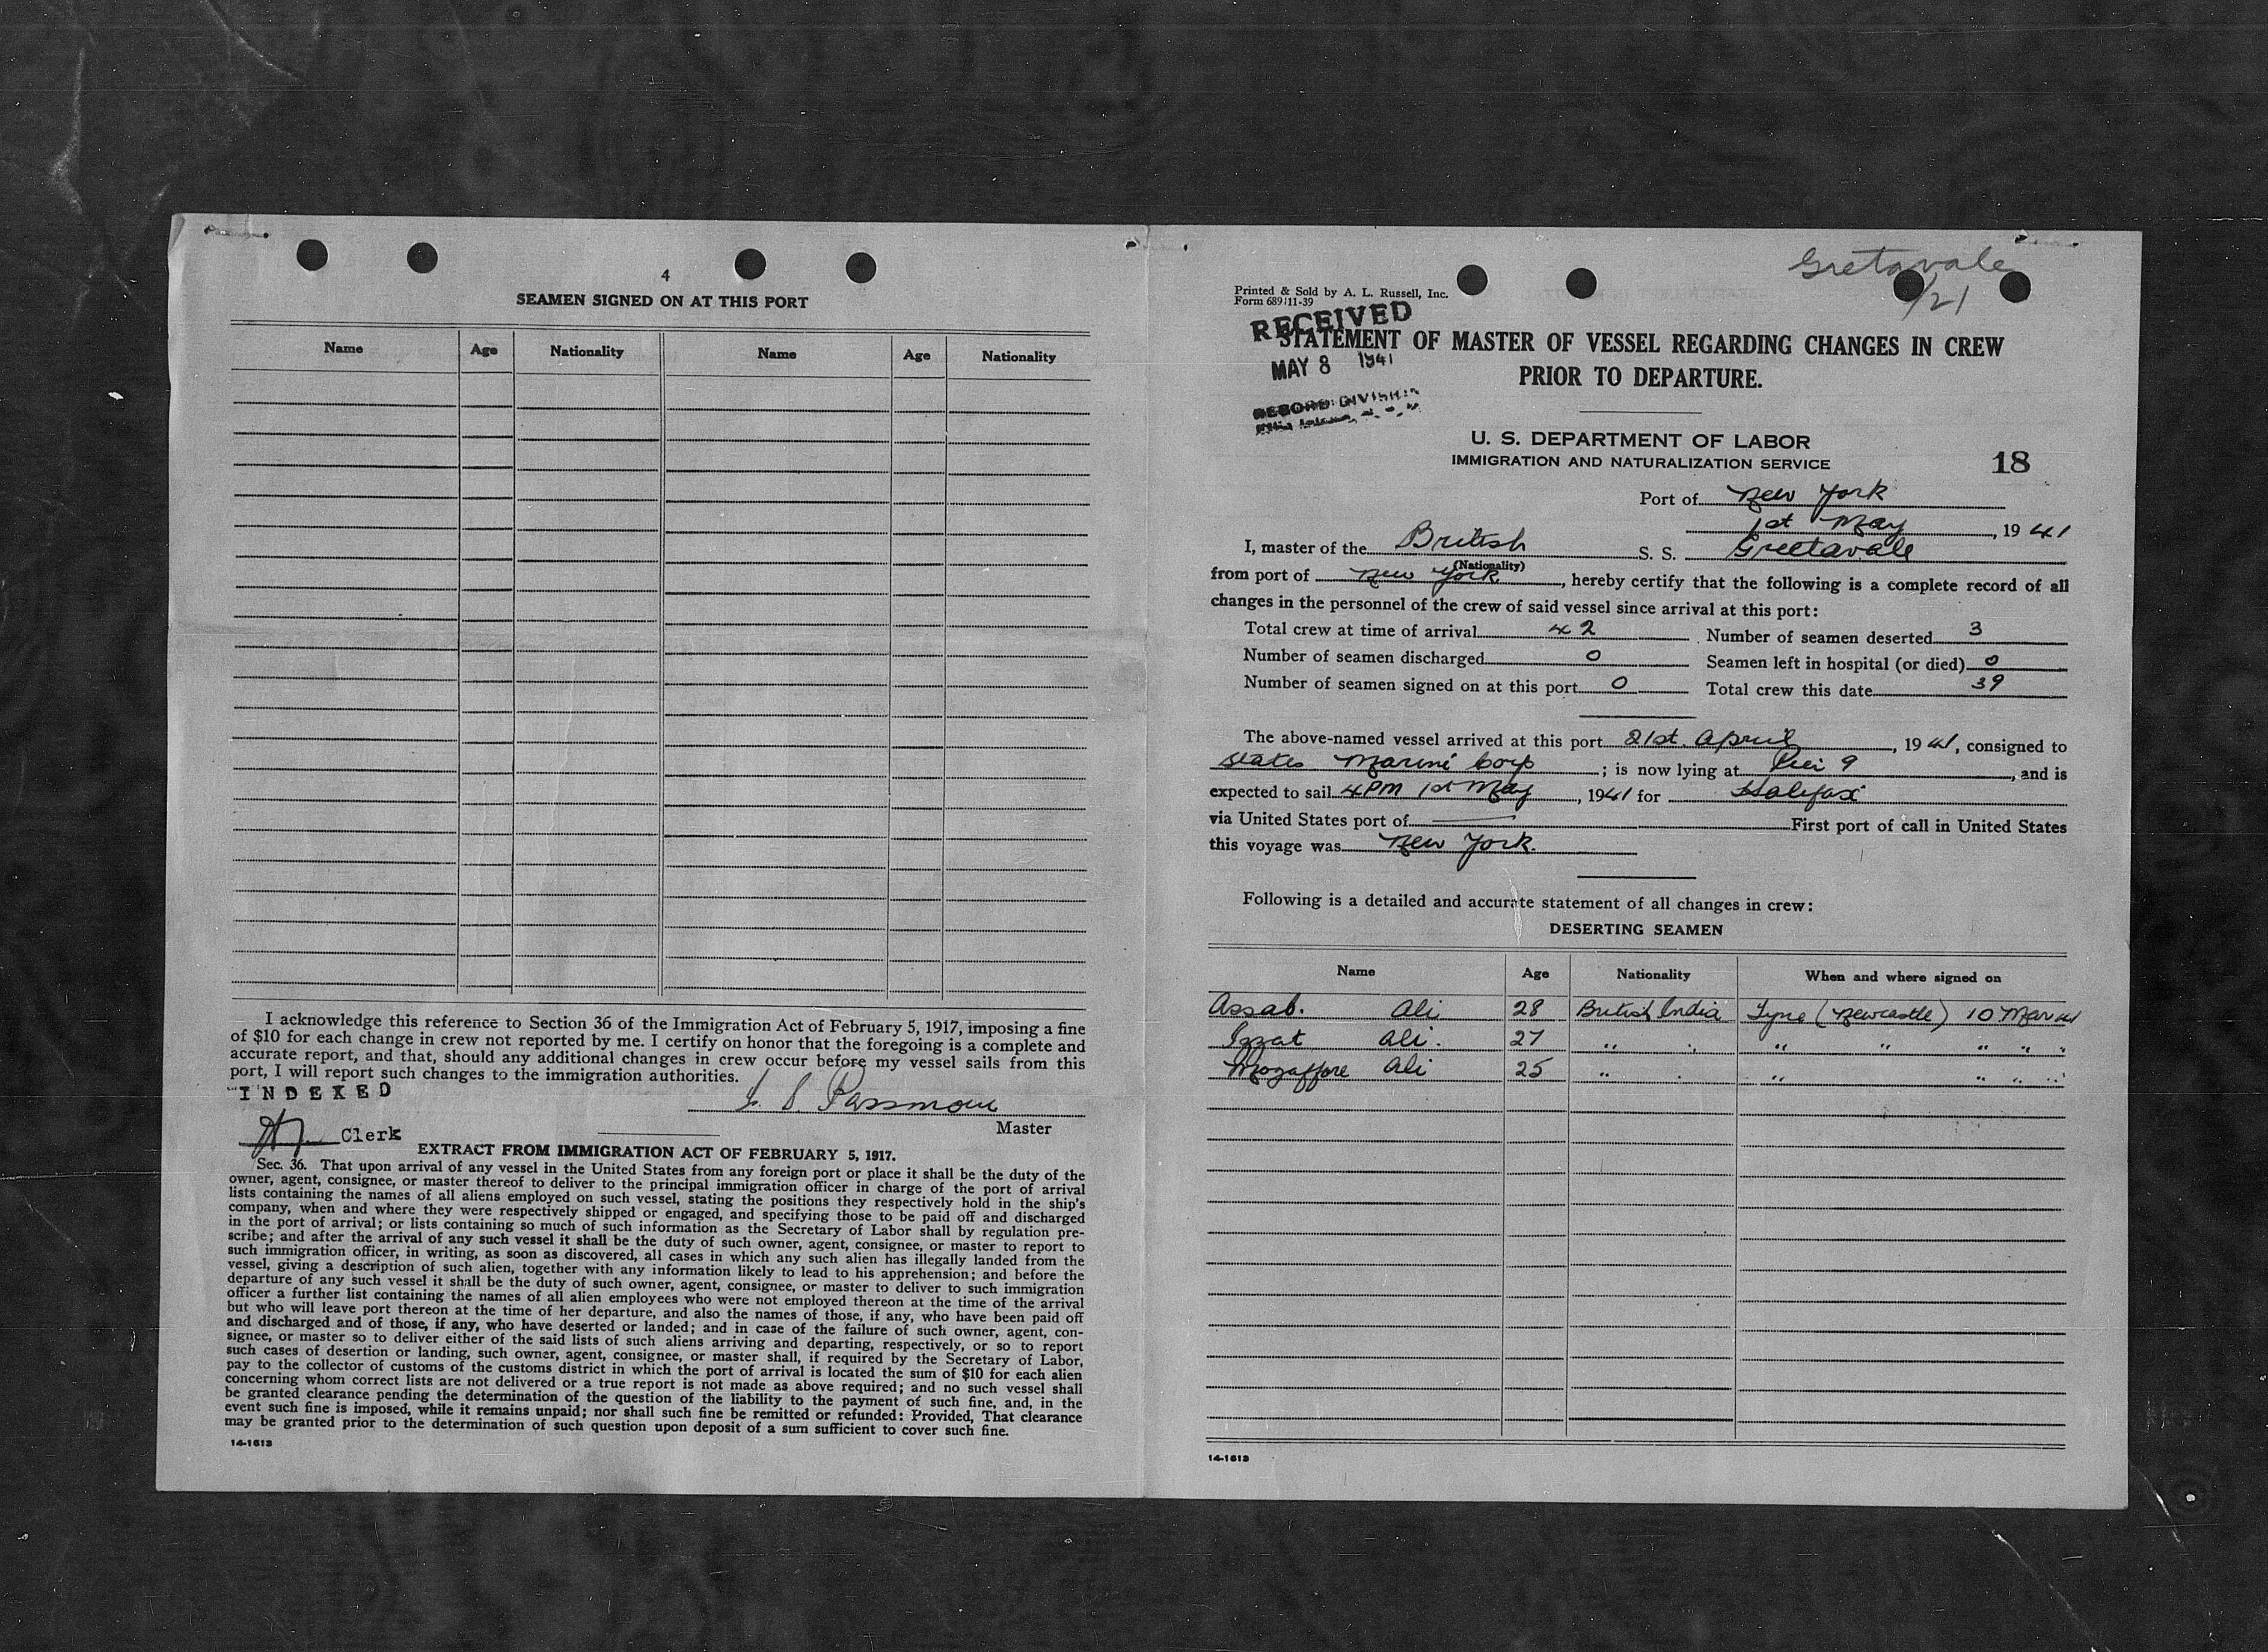 4
SEAMEN SIGNED ON AT THIS PORT
Name Age Nationality Name Age Nationality
I acknowledge this reference to Section 36 of the Immigration Act of February 5, 1917, imposing a fine
of $10 for each change in crew not reported by me. I certify on honor that the foregoing is a complete and
accurate report, and that, should any additional changes in crew occur before my vessel sails from this
port, I will report such changes to the immigration authorities.
INDEXED
Passmore
Clerk
Master
EXTRACT FROM IMMIGRATION ACT OF FEBRUARY 5, 1917.
Sec. 36. That upon arrival of any vessel in the United States from any foreign port or place it shall be the duty of the
owner, agent, consignee, or master thereof to deliver to the principal immigration officer in charge of the port of arrival
lists containing the names of all aliens employed on such vessel, stating the positions they respectively hold in the ship's
company, when and where they were respectively shipped or engaged, and specifying those to be paid off and discharged
in the port of arrival; or lists containing so much of such information as the Secretary of Labor shall by regulation pre-
scribe; and after the arrival of any such vessel it shall be the duty of such owner, agent, consignee, or master to report to
such immigration officer, in writing, as soon as discovered, all cases in which any such alien has illegally landed from the
vessel, giving a description of such alien, together with any information likely to lead to his apprehension; and before the
departure of any such vessel it shall be the duty of such owner, agent, consignee, or master to deliver to such immigration
officer a further list containing the names of all alien employees who were not employed thereon at the time of the arrival
but who will leave port thereon at the time of her departure, and also the names of those, if any, who have been paid off
and discharged and of those, if any, who have deserted or landed; and in case of the failure of such owner, agent, con-
signee, or master so to deliver either of the said lists of such aliens arriving and departing, respectively, or so to report
such cases of desertion or landing, such owner, agent, consignee, or master shall, if required by the Secretary of Labor,
pay to the collector of customs of the customs district in which the port of arrival is located the sum of $10 for each alien
concerning whom correct lists are not delivered or a true report is not made as above required; and no such vessel shall
be granted clearance pending the determination of the question of the liability to the payment of such fine, and, in the
event such fine is imposed, while it remains unpaid; nor shall such fine be remitted or refunded: Provided, That clearance
may be granted prior to the determination of such question upon deposit of a sum sufficient to cover such fine.
14-1613
Gretavale
/21
Printed & Sold by A. L. Russell, Inc.
Form 689 11-39
RECEIVED
STATEMENT OF MASTER OF VESSEL REGARDING CHANGES IN CREW
MAY 8 1941
PRIOR TO DEPARTURE.
RECORD DIVISION
U. S. DEPARTMENT OF LABOR
IMMIGRATION AND NATURALIZATION SERVICE
18
Port of New York
1st May, 1941
I, master of the British S. S. Greetavale
(Nationality)
from port of New York, hereby certify that the following is a complete record of all
changes in the personnel of the crew of said vessel since arrival at this port:
Total crew at time of arrival 42 Number of seamen deserted 3
Number of seamen discharged 0 Seamen left in hospital (or died) 0
Number of seamen signed on at this port 0 Total crew this date 39
The above-named vessel arrived at this port 21st. April, 1941, consigned to
States Marine Corp; is now lying at Pier 9, and is
expected to sail 4PM 1st May, 1941 for Halifax
via United States port of First port of call in United States
this voyage was New York.
Following is a detailed and accurate statement of all changes in crew:
DESERTING SEAMEN
Name Age Nationality When and where signed on
Assab. Ali 28 British India Tyne (Newcastle) 10 Mar 41
Izzat Ali. 27 " " " " " " "
Mozaffore Ali 25 " " " " " "
14-1613